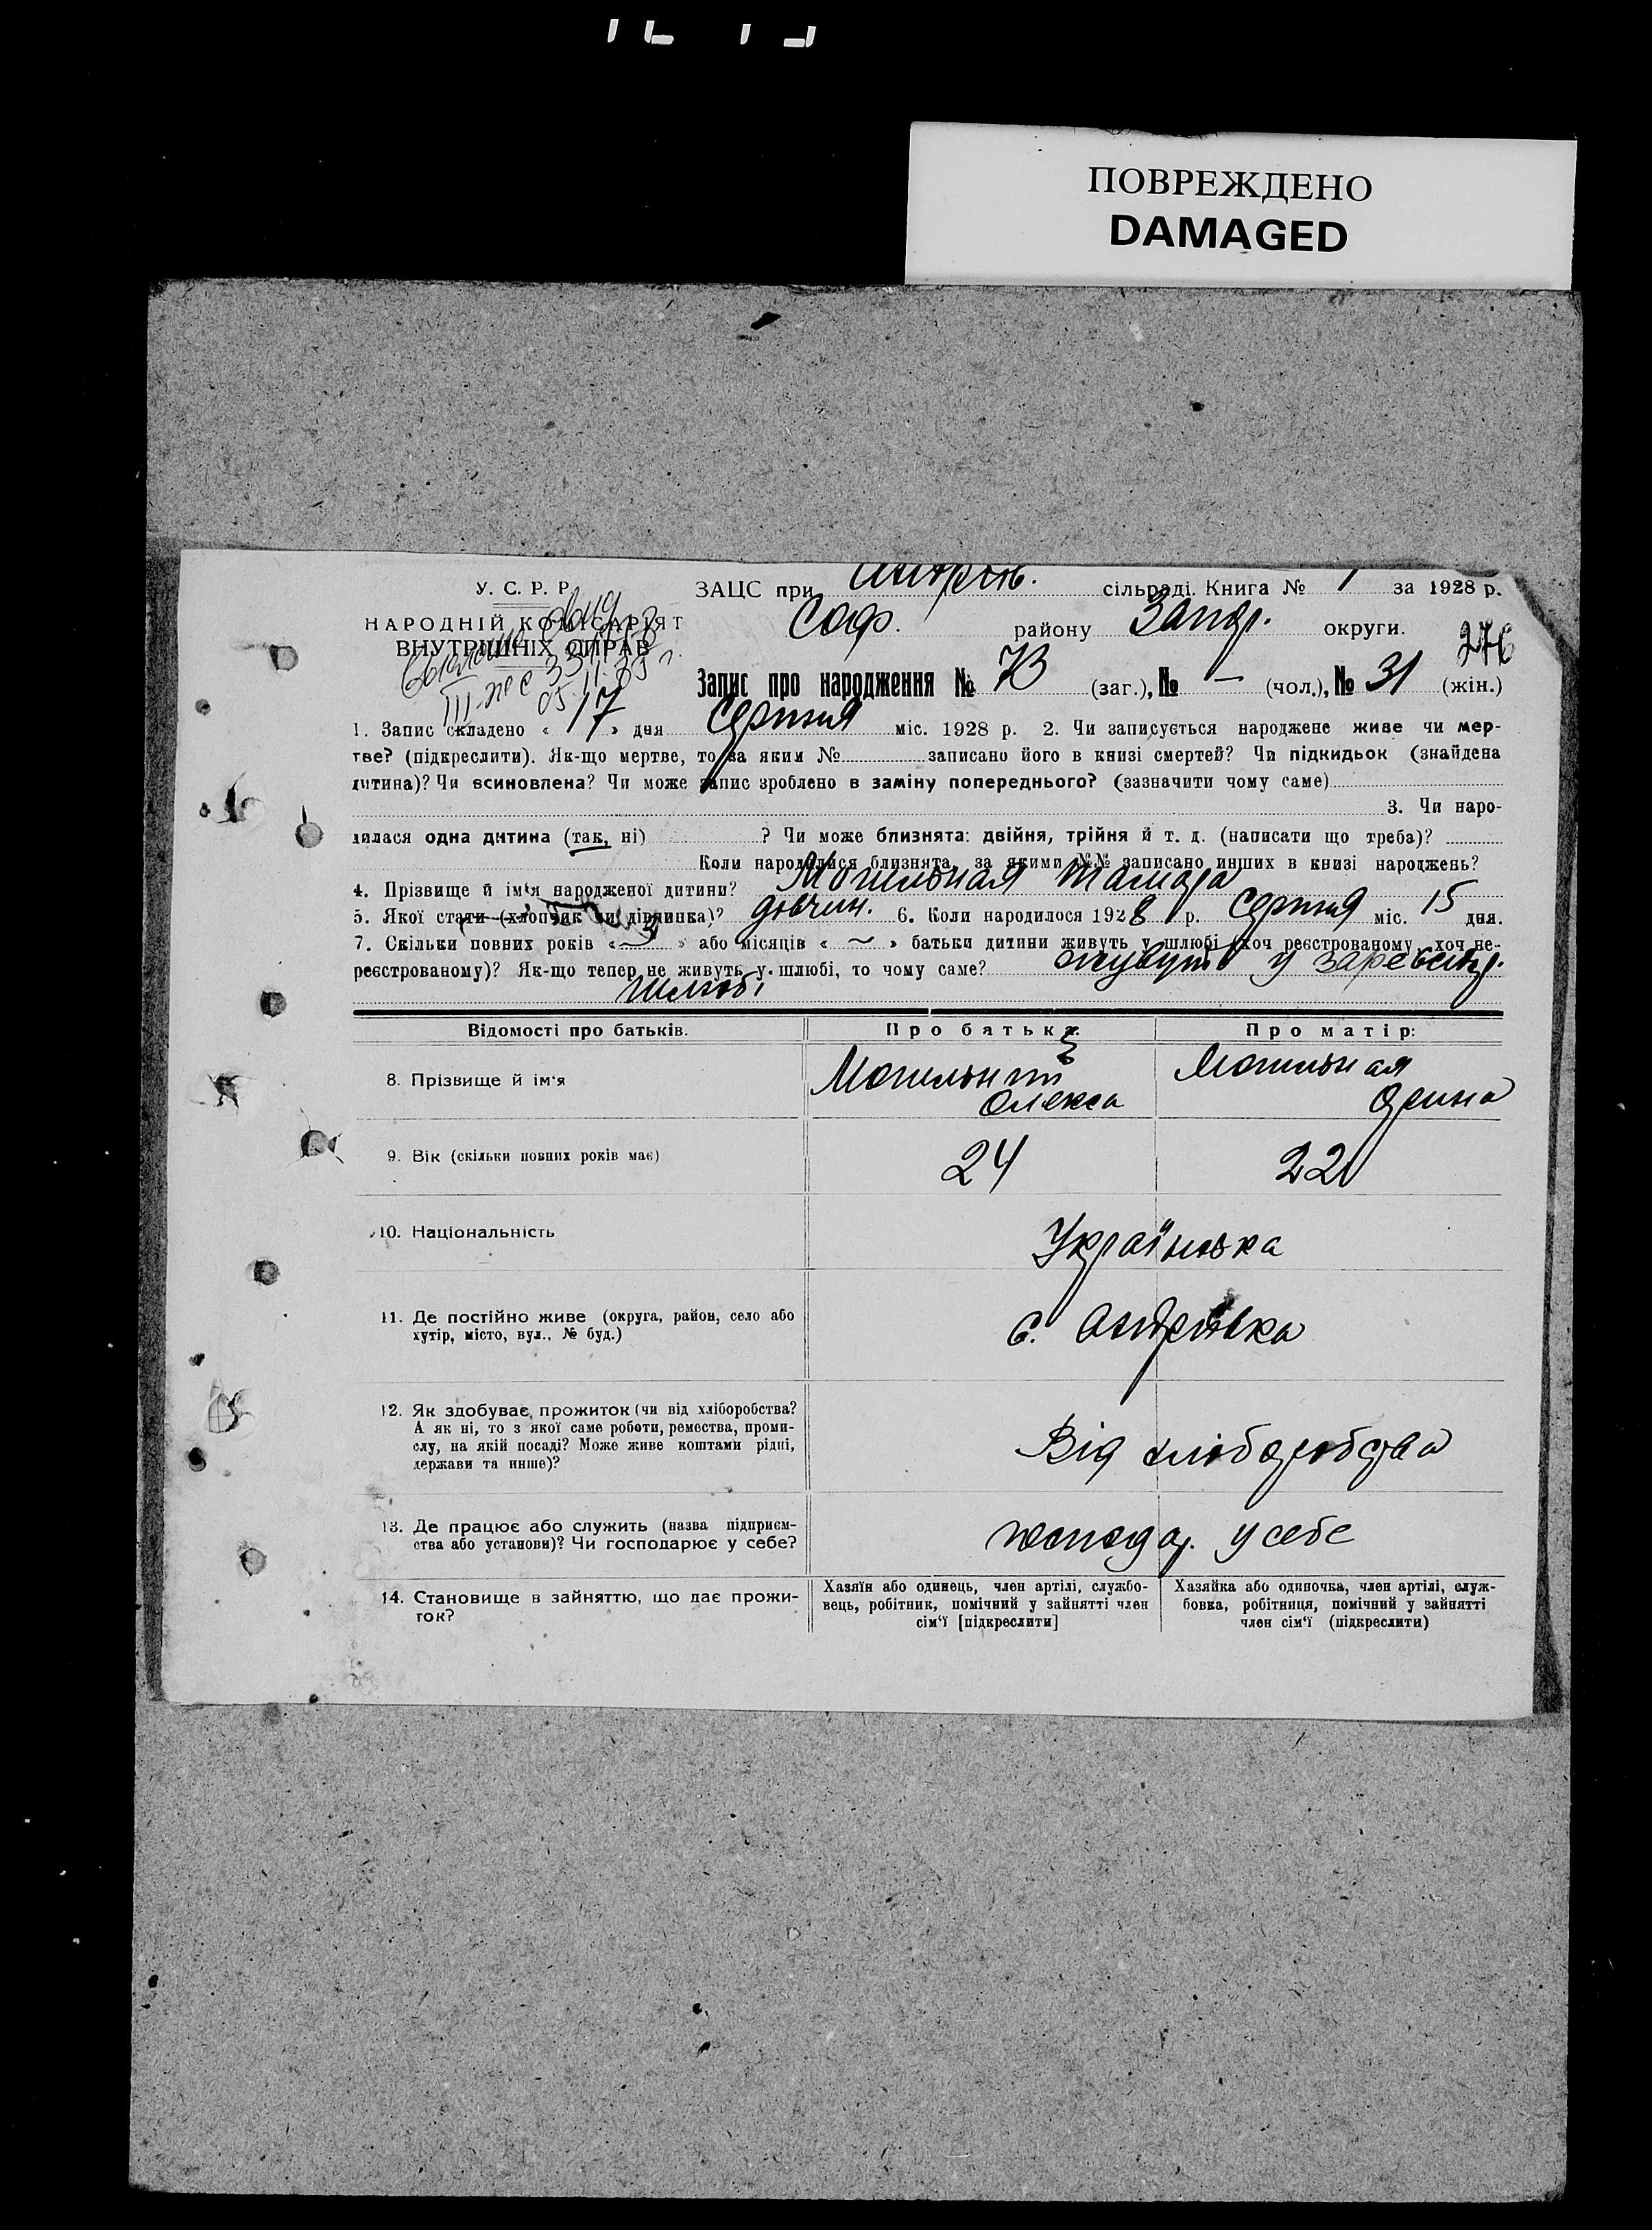 ПОВРЕЖДЕНО
DAMAGED
У. С. Р. Р.
НАРОДНІЙ КОМІСАРІЯТ
ВНУТРІШНІХ СПРАВ
ЗАЦС при Андрів. сільраді. Книга № 1 за 1928 р.
Соф. району Запор. округи.
276
Запис про народження № 73 (заг.), № – (чол.), № 31 (жін.)
1. Запис складено « 17 » дня Серпня міс. 1928 р. 2. Чи записується народжене живе чи мер-
тве? (підкреслити). Як-що мертве, то за яким № записано його в книзі смертей? Чи підкидьок (знайдена
дитина)? Чи всиновлена? Чи може запис зроблено в заміну попереднього? (зазначити чому саме)
3. Чи наро-
дилася одна дитина (так, ні) ? Чи може близнята: двійня, трійня й т. д. (написати що треба)?
Коли народилися близнята, за якими №№ записано инших в книзі народжень?
4. Прізвище й ім‘я народженої дитини? Могильная Тамара
5. Якої стати (хлопчик чи дівчинка)? дівчин. 6. Коли народилося 1928 р. Серпня міс. 15 дня.
7. Скільки повних років « ~ » або місяців « ~ » батьки дитини живуть у шлюбі (хоч реєстрованому, хоч не-
реєстрованому)? Як-що тепер не живуть у шлюбі, то чому саме? живуть у зареєстр.
шлюбі
Відомості про батьків. Про батька: Про матір:
8. Прізвище й ім‘я Могильний Олекса Могильная Орина
9. Вік (скільки повних років має) 24 22
10. Національність Українська
11. Де постійно живе (округа, район, село або
хутір, місто, вул., № буд.) с. Андрівка
12. Як здобуває прожиток (чи від хліборобства?
А як ні, то з якої саме роботи, ремества, проми-
слу, на якій посаді? Може живе коштами рідні,
держави та инше)? Від хліборобства
13. Де працює або служить (назва підприєм-
ства або установи)? Чи господарює у себе? господар. у себе
14. Становище в зайняттю, що дає прожи-
ток?
Хазяїн або одинець, член артілі, службо-
вець, робітник, помічний у зайнятті член
сім‘ї [підкреслити]
Хазяйка або одиночка, член артілі, служ-
бовка, робітниця, помічний у зайнятті
член сім‘ї (підкреслити)